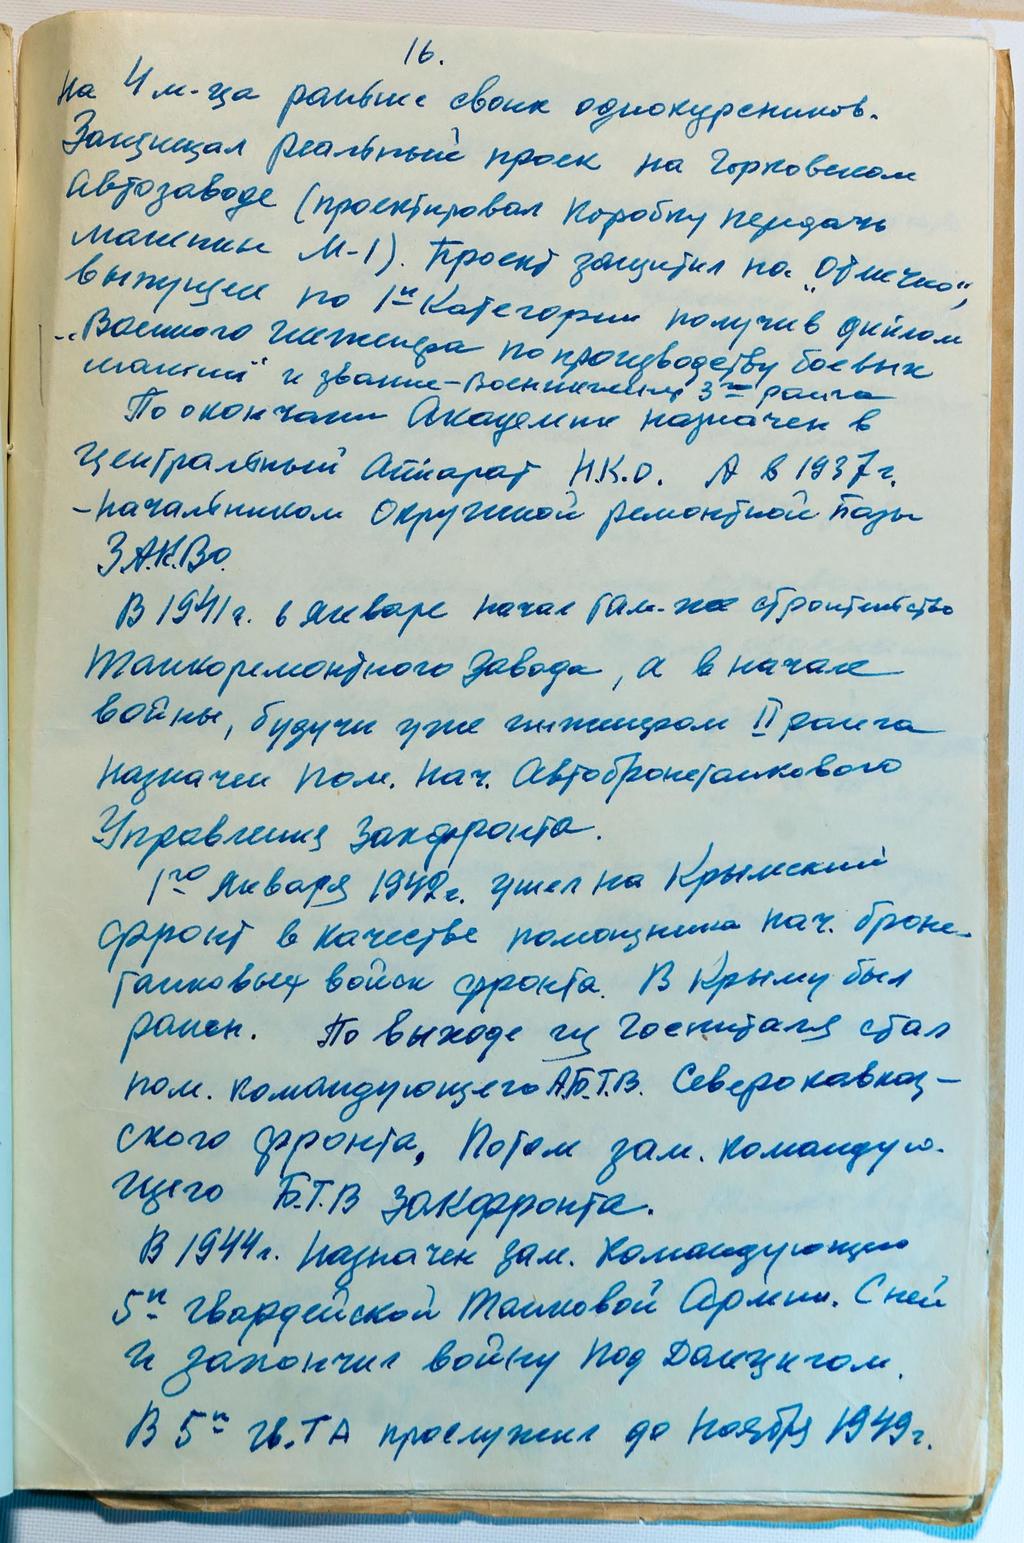 16.
на 4 м-ца раньше своих однокурсников.
Защищал реальный проек на Горьковском
Автозаводе (проектировал Коробку передачь
машины М-1). Проект защитил на „Отлично“,
выпущен по 1й Категории получив диплом
„Военного инженера по производству боевых
машин“ и звание – Военинженера 3го ранга
По окончании Академии назначен в
Центральный Аппарат Н.К.О. А в 1937 г.
– начальником Окружной ремонтной базы
ЗАК.ВО.
В 1941 г. в январе начал там-же строительство
Танкоремонтного Завода, а в начале
войны, будучи уже инженером II ранга
назначен пом. нач. Автобронетанкового
Управления Закфронта.
1го Января 1942 г. ушел на Крымский
фронт в качестве помощника нач. броне-
танковых войск фронта. В Крыму был
ранен. По выходе из Госпиталя стал
пом. командующего А.Б.Т.В. Северокавказ-
ского фронта, Потом зам. командую-
щего Б.Т.В Закфронта.
В 1944 г. назначен зам. командующего
5й Гвардейской Танковой Армии. С ней
и закончил войну под Данцигом.
В 5й Гв.ТА прослужил до Ноября 1949 г.